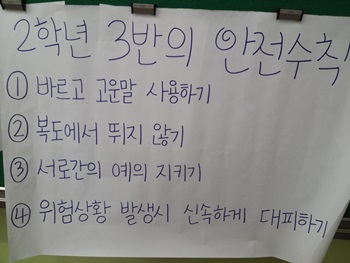 2학년 3반의 안전수칙!
① 바르고 고운말 사용하기
② 복도에서 뛰지 않기
③ 서로간의 예의 지키기
④ 위험상황 발생시 신속하게 대피하기